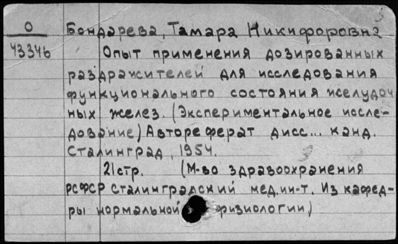 О Бондарева, Тамара Никифоровна
43346 Опыт применения дозированных
раздражителей для исследования
функционального состояния желудоч
ных желез. (Экспериментальное иссле-
дование) Автореферат дисс... канд.
Сталинград, 1954.
21стр. (М-во здравоохранения
РСФСР Сталинградский мед.ин-т. Из кафед-
ры нормальной физиологии)